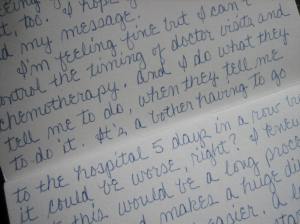 it, too. I hope y
d my message.
I'm feeling fine but I can't
ontrol the timing of doctor visits and
chemotherapy, and I do what they
tell me to do, when they tell me
to do it. It's a bother having to go
to the hospital 5 days in a row but
it could be worse, right? I
this would be a long proce
and makes a huge di
easier. A l